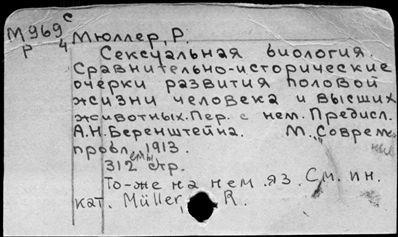 М969 с
Р 4
Мюллер, Р.
Сексуальная биология.
Сравнительно-исторические
очерки развития половой
жизни человека и высших
животных. Пер. с нем. Предисл.
А.Н. Беренштейна. М., Соврем.
пробл., 1913.
312 стр.
То-же на нем. яз. См. ин.
кат. Müller, R.